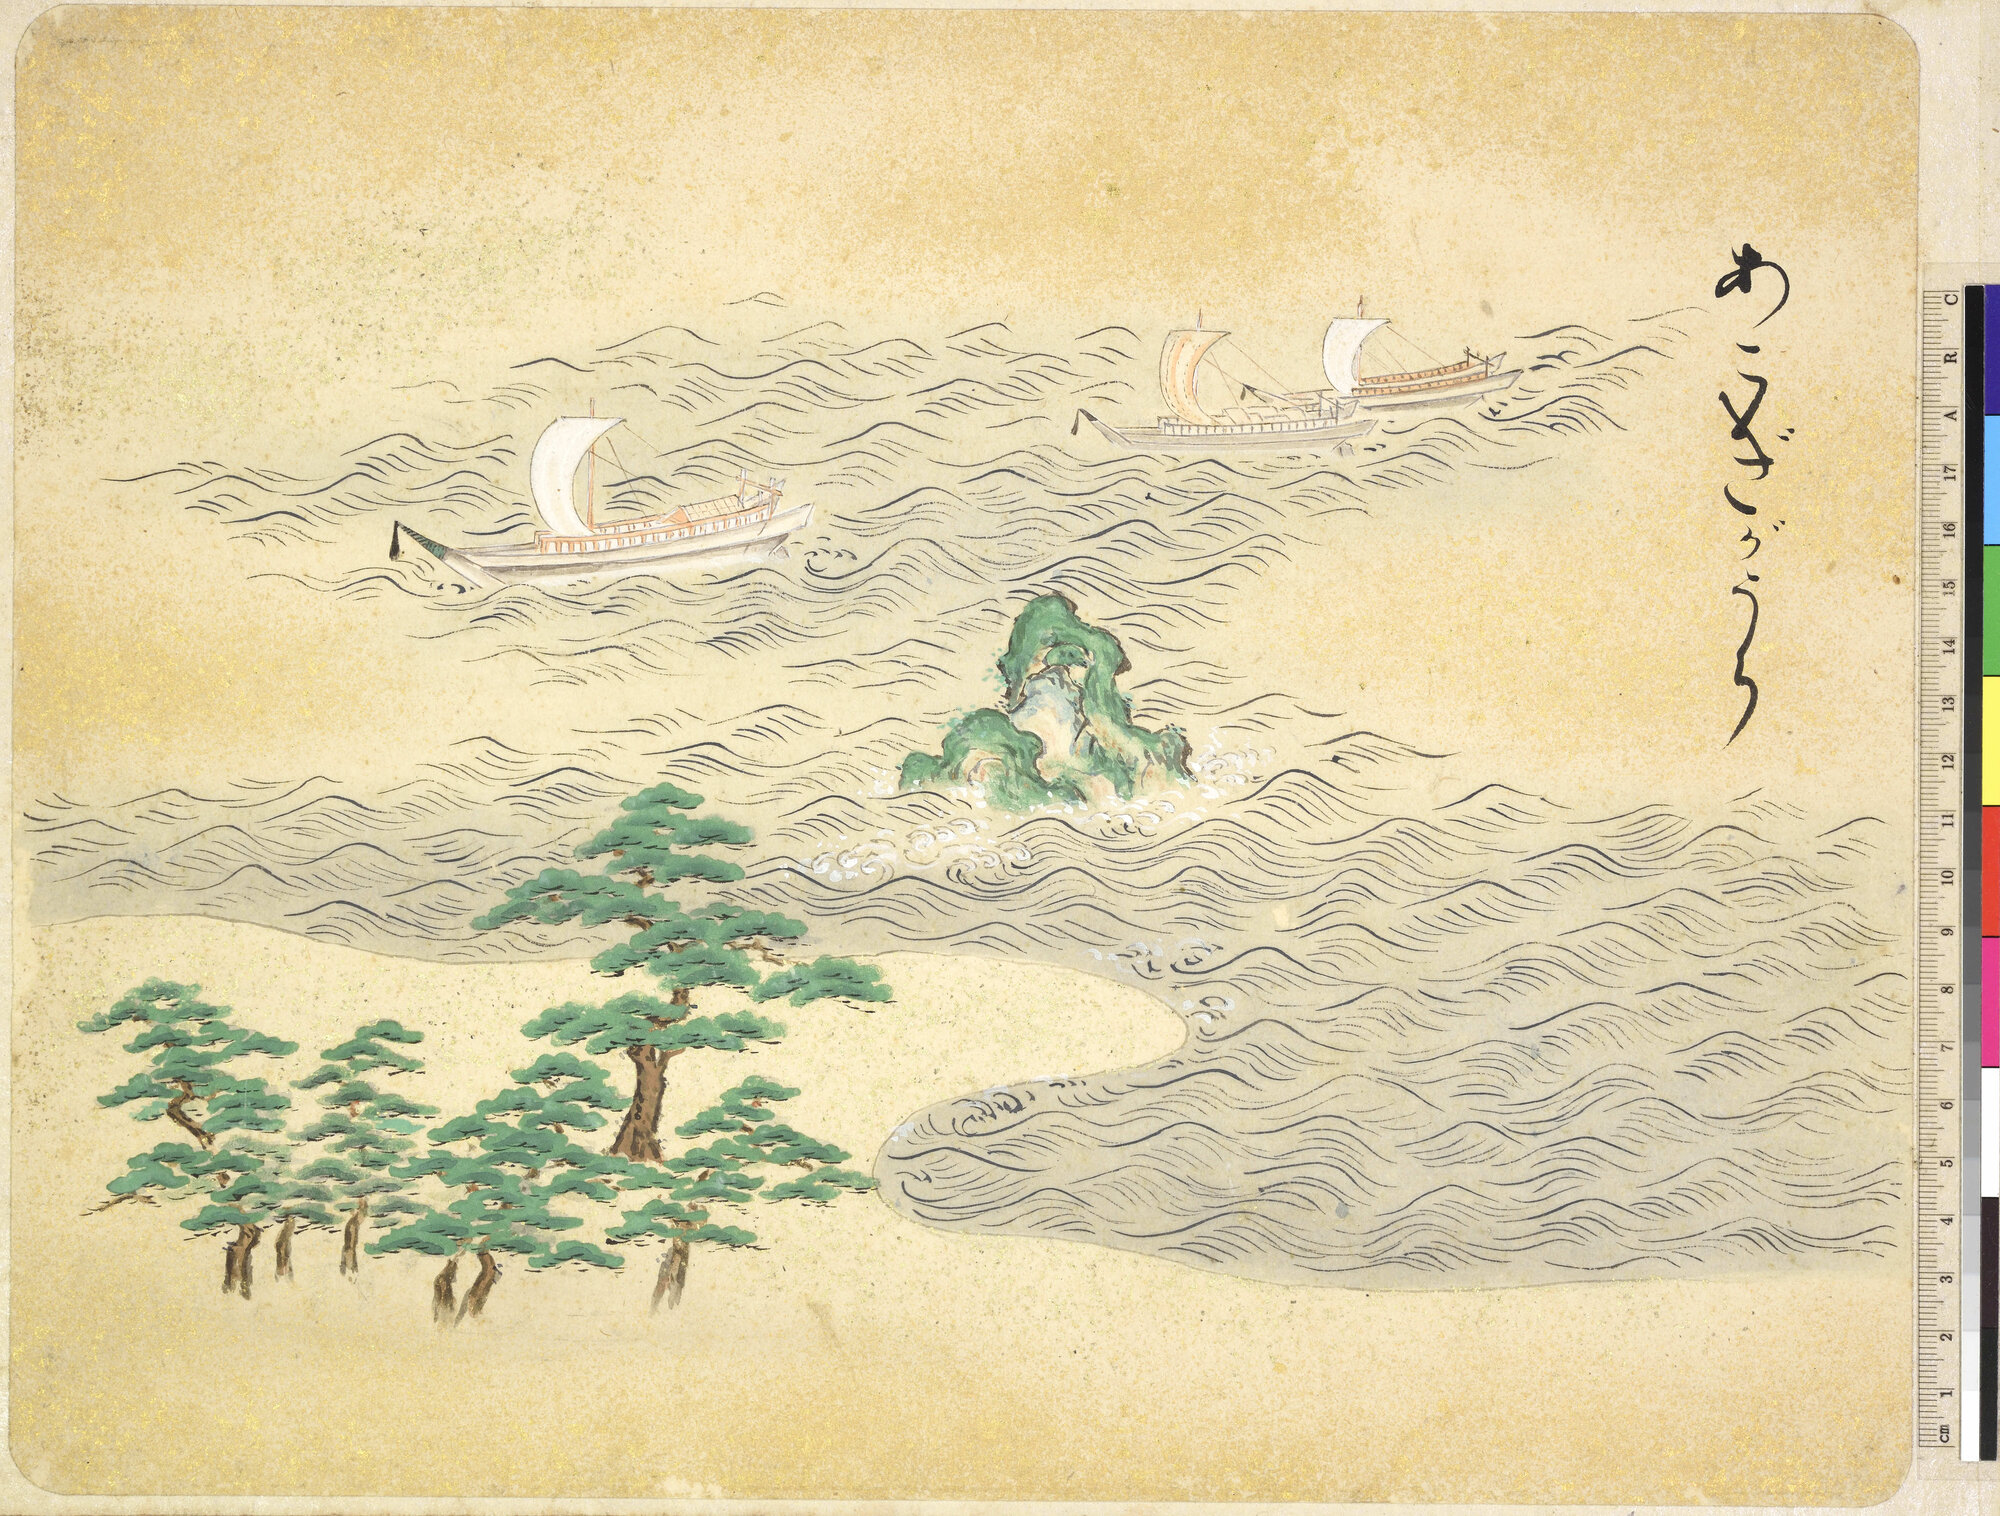 あこぎがうら
cm 1 2 3 4 5 6 7 8 9 10 11 12 13 14 15 16 17 A R C